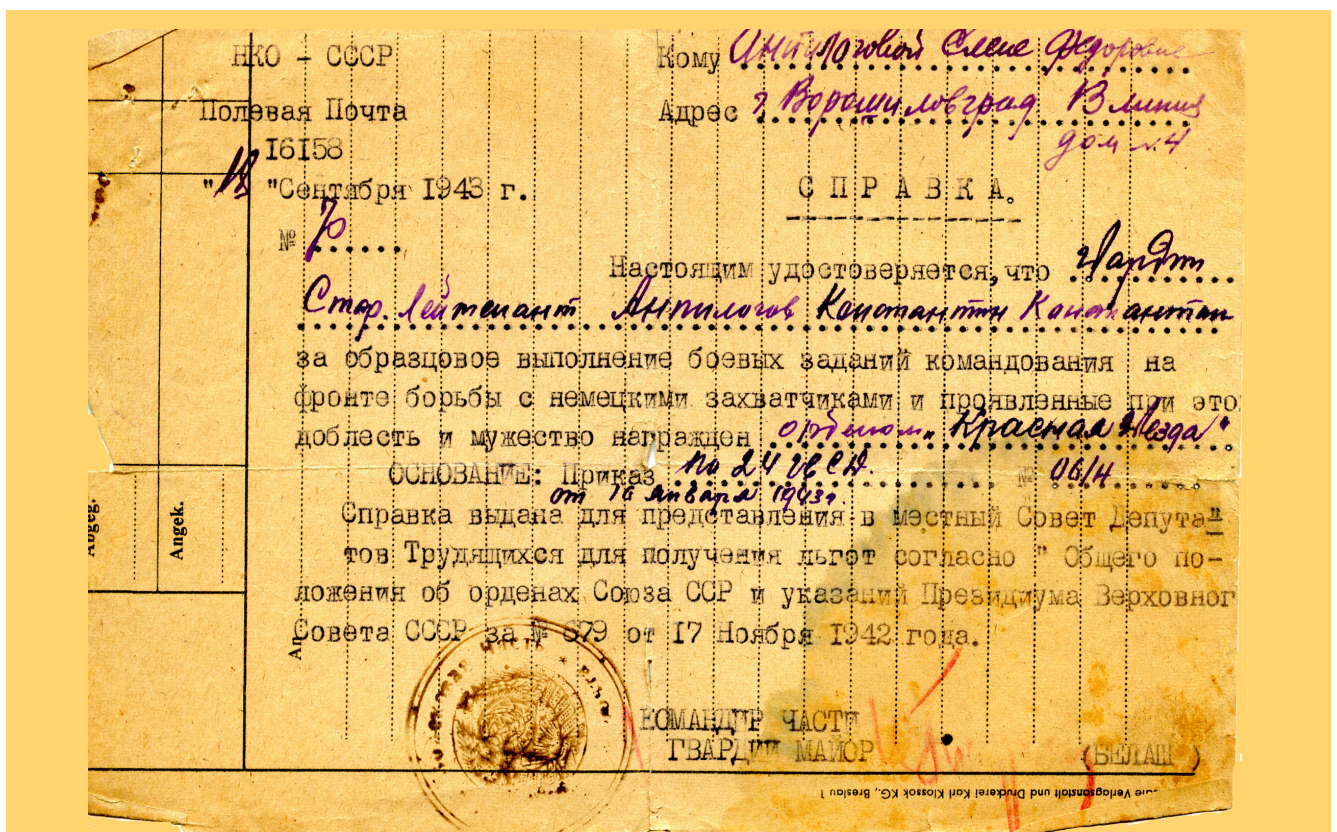 НКО - СССР
Кому Анпилоговой Елене Федоровне
Полевая Почта
Адрес г. Ворошиловград 13 линия
дом №4
16158
"18" Сентября 1943 г.
СПРАВКА.
№ 70
Настоящим удостоверяется, что Гвардии
Стар. Лейтенант Анпилогов Константин Константин
за образцовое выполнение боевых заданий командования на
фронте борьбы с немецкими захватчиками и проявленные при это
доблесть и мужество награжден орденом "Красная Звезда"
ОСНОВАНИЕ: Приказ по 24 гв СД. № 06/н
от 16 января 1943г
Справка выдана для представления в местный Совет Депута-
тов Трудящихся для получения льгот согласно " Общего по-
ложения об орденах Союза ССР и указаний Президиума Верховног
Совета СССР за № 679 от 17 Ноября 1942 года.
КОМАНДИР ЧАСТИ
ГВАРДИИ МАЙОР (БЕЛАШ)
Abgeg.
Angek.
An
Verlagsanstalt und Druckerei Karl Klossok KG., Breslau 1